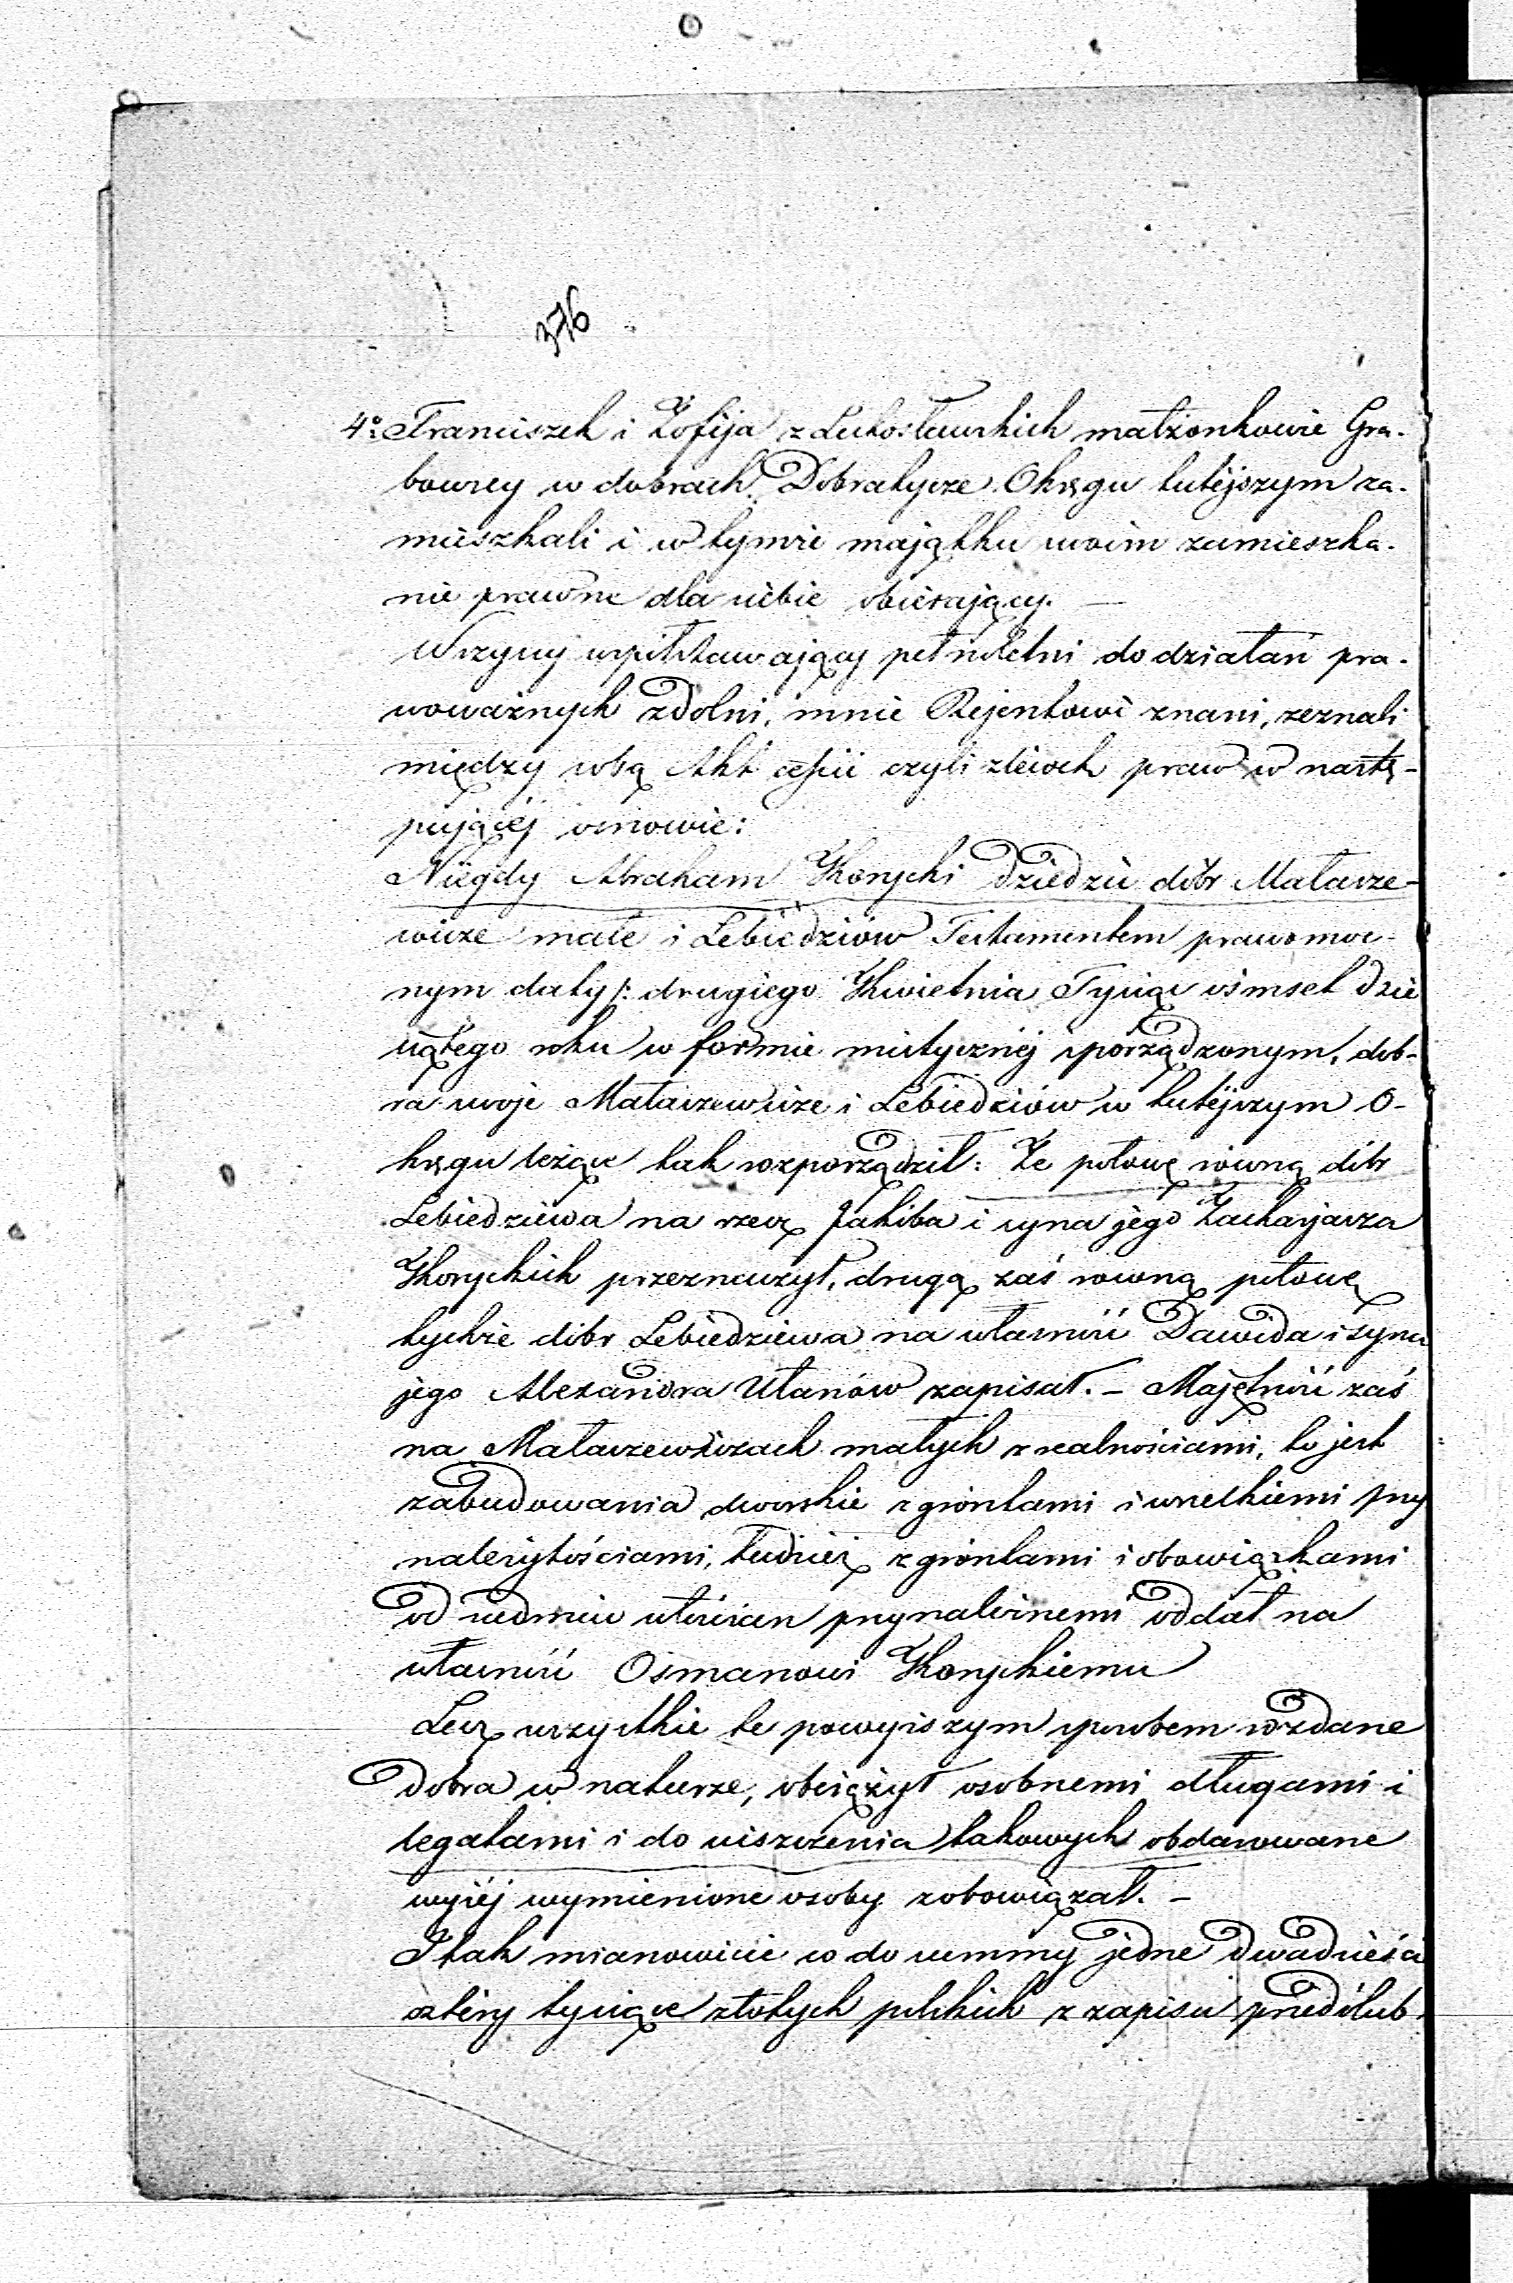 376
4º Franciszek i Zofija z Lutosławskich małżonkowie Gra-
bowscy w dobrach Dobratycze Okręgu tutéjszym za-
mieszkali i w tymże majątku swoim zamieszka-
nie prawne dla siebie obierający. —
Wszyscy współstawający pełnoletni do działań pra-
woważnych zdolni, mnie Rejentowi znani, zeznali
między sobą Akt cessii czyli zlewek praw w nastę-
pującéj osnowie:
Niegdy Abraham Korycki dziedzic dóbr Małasze-
wicze małe i Lebiedziów Testamentem prawomoc-
nym daty /: drugiego Kwietnia Tysiąc ósmset dzie
siątego roku w formie mistycznéj sporządzonym, dob-
ra swoje Małaszewicze i Lebiedziów w tutéjszym O-
kręgu leżące tak rozporządził: Że połowę równą dóbr
Lebiedziewa na rzecz Jakóba i syna jego Zacharjasza
Koryckich przeznaczył, drugą zaś równą połowę
tychże dóbr Lebiedziewa na własność Dawida i syna
jego Alexandra Ułanów zapisał. – Majętność zaś
na Małaszewiczach małych z realnościami, to jest
zabudowania dworskie z gróntami i wszelkiemi przy
należytościami, tudzież z gróntami i obowiązkami
od siedmiu włościan przynależnemi oddał na
własność Osmanowi Koryckiemu
Lecz wszystkie te powyższym sposobem rozdane
dobra w naturze, obciążył osobnemi długami i
legatami i do uiszczenia takowych obdarowane
wyżéj wymienione osoby zobowiązał. –
I tak mianowicie co do summy jedne dwadzieścia
cztéry tysiące złotych polskich z zapisu przedślub-